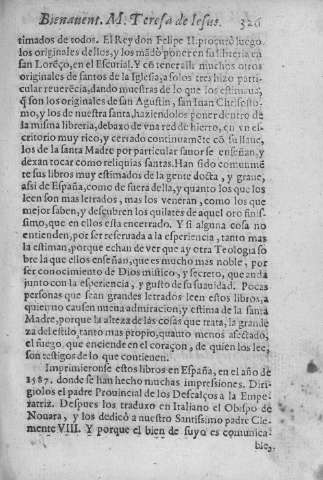 Bienauent. M. Teresa de Iesus. 326
timados de todos. El Rey don Felipe II. procurò luego
los originales dellos, y los mãdò poner en su libreria en
san Lorẽço, en el Escurial. Y cõ tener alli muchos otros
originales de santos de la Iglesia, a solos tres hizo parti-
cular reuerẽcia, dando muestras de lo que los estimaua,
q̃ son los originales de san Agustin, san Iuan Chrisosto-
mo, y los de nuestra santa, haziendolos poner dentro de
la misma libreria, debaxo de vna red de hierro, en vn es-
critorio muy rico, y cerrado continuamẽte cõ su llaue,
los de la santa Madre por particular fauor se enseñan, y
dexan tocar como reliquias santas. Han sido comunmẽ
te sus libros muy estimados de la gente docta, y graue,
assi de España, como de fuera della, y quanto los que los
leen son mas letrados, mas los veneran, como los que
mejor saben, y descubren los quilates de aquel oro finis-
simo, que en ellos esta encerrado. Y si alguna cosa no
entienden, por ser reseruada a la esperiencia, tanto mas
la estiman, porque echan de ver que ay otra Teologia so
bre la que ellos enseñan, que es mucho mas noble, por
ser conocimiento de Dios mistico, y secreto, que anda
junto con la esperiencia, y gusto de su suauidad. Pocas
personas que sean grandes letrados leen estos libros, a
quien no causen nueua admiracion, y estima de la santa
Madre, porque la alteza de las cosas que trata, la grande
za del estilo, tanto mas propio, quanto menos afectado,
el fuego que enciende en el coraçon, de quien los lee,
son testigos de lo que contienen.
Imprimieronse estos libros en España, en el año de
1587. donde se han hecho muchas impressiones. Diri-
giolos el padre Prouincial de los Descalços a la Empe-
ratriz. Despues los traduxo en Italiano el Obispo de
Nouara, y los dedicó a nuestro Santissimo padre Cle-
mente VIII. Y porque el bien de suyo es comunica-
ble,